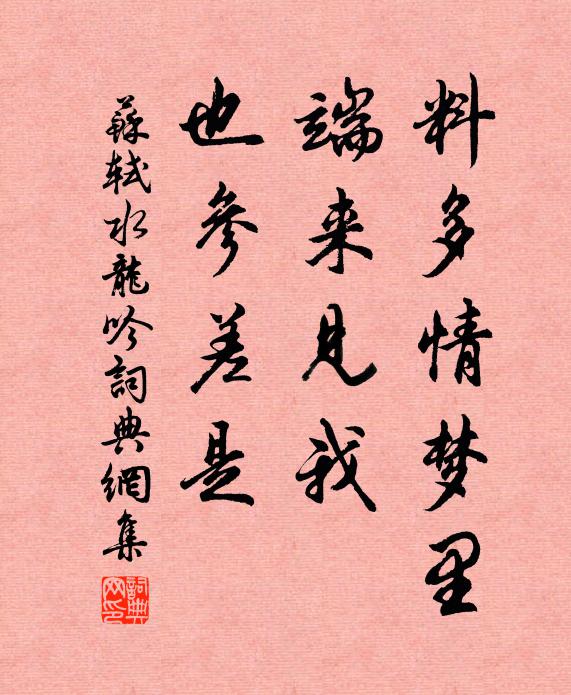 料多情梦里
端来见我
也参差是
蘇軾水龍吟詞典網集
詞典网印